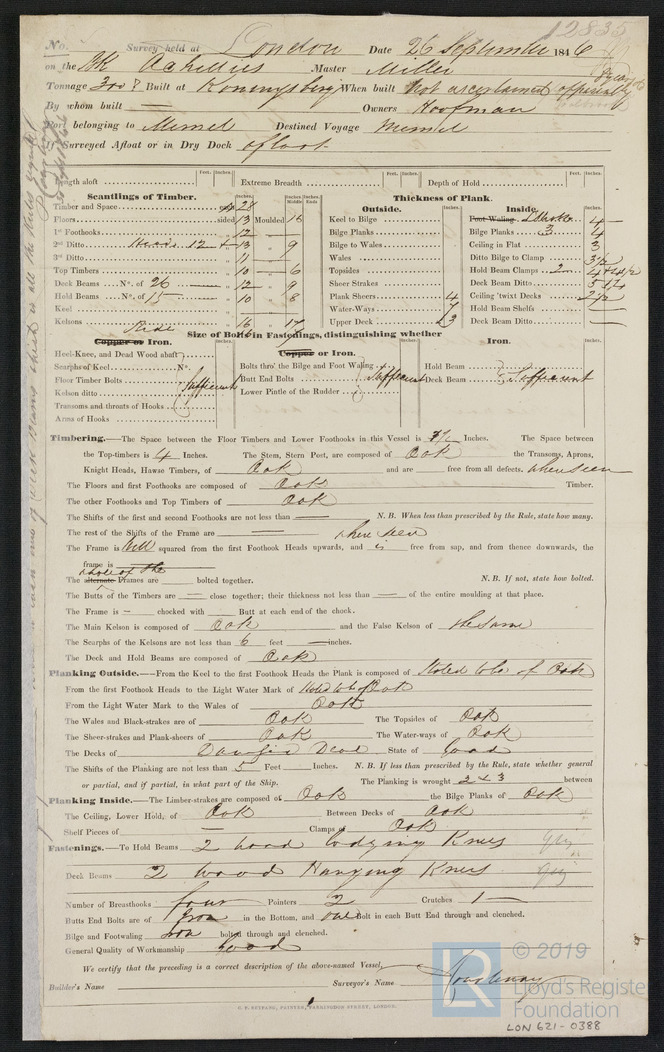 12835
No. Survey held at London Date 26 September 1846
on the Bk Achilles Master Miller
Tonnage 300 Built at Konningsberg When built Not ascertained officially
By whom built — Owners Hoofman
Port belonging to Memel Destined Voyage Memel
If Surveyed Afloat or in Dry Dock afloat
Feet. Inches. Feet. Inches. Feet. Inches.
Length aloft Extreme Breadth Depth of Hold
Scantlings of Timber. Inches. Inches. Middle Inches. Ends
Thickness of Plank.
Outside. Inches. Inside. Inches.
Timber and Space 28
Floors sided 13 Moulded 16
1st Foothooks 12 —
2nd Ditto Heads 12 + 13 9
3rd Ditto 11 —
Top Timbers 10 — 6
Deck Beams No. of 26 12 9
Hold Beams No. of 15 10 8
Keel
Kelsons Ride 16 17
Keel to Bilge
Bilge Planks
Bilge to Wales
Wales
Topsides
Sheer Strakes
Plank Sheers 4
Water-Ways 7
Upper Deck 3
Foot Waling 4
Bilge Planks 3 4
Ceiling in Flat 3
Ditto Bilge to Clamp 3 1/2
Hold Beam Clamps 2 4 + 4 1/2
Deck Beam Ditto 5 + 4
Ceiling 'twixt Decks 2 1/2
Hold Beam Shelfs —
Deck Beam Ditto —
Size of Bolts in Fastenings, distinguishing whether
Copper or Iron. Copper or Iron. Iron.
Heel-Knee, and Dead Wood abaft
Scarphs of Keel No.
Floor Timber Bolts Sufficient
Kelson ditto
Transoms and throats of Hooks
Arms of Hooks
Bolts thro' the Bilge and Foot Waling
Butt End Bolts Sufficient
Lower Pintle of the Rudder
Hold Beam
Deck Beam Sufficient
Timbering.—The Space between the Floor Timbers and Lower Foothooks in this Vessel is Inches. The Space between
the Top-timbers is 4 Inches. The Stem, Stern Post, are composed of Oak the Transoms, Aprons,
Knight Heads, Hawse Timbers, of Oak and are — free from all defects. where seen
The Floors and first Foothooks are composed of Oak Timber.
The other Foothooks and Top Timbers of Oak
The Shifts of the first and second Foothooks are not less than — N. B. When less than prescribed by the Rule, state how many.
The rest of the Shifts of the Frame are — where seen
The Frame is Well squared from the first Foothook Heads upwards, and is free from sap, and from thence downwards, the
frame is —
The alternate whole of the Frames are bolted together. N. B. If not, state how bolted.
The Butts of the Timbers are — close together; their thickness not less than — of the entire moulding at that place.
The Frame is — chocked with Butt at each end of the chock.
The Main Kelson is composed of Oak and the False Kelson of the same
The Scarphs of the Kelsons are not less than 6 feet — inches.
The Deck and Hold Beams are composed of Oak
Planking Outside.—From the Keel to the first Foothook Heads the Plank is composed of Stated to be of Oak
From the first Foothook Heads to the Light Water Mark of Stated to be of Oak
From the Light Water Mark to the Wales of Oak
The Wales and Black-strakes are of Oak The Topsides of Oak
The Sheer-strakes and Plank-sheers of Oak The Water-ways of Oak
The Decks of Danzig Deal State of Good
The Shifts of the Planking are not less than 5 Feet — Inches. N. B. If less than prescribed by the Rule, state whether general
or partial, and if partial, in what part of the Ship. The Planking is wrought 2 & 3 between
Planking Inside.—The Limber-strakes are composed of Oak the Bilge Planks of Oak
The Ceiling, Lower Hold, of Oak Between Decks of Oak
Shelf Pieces of — Clamps of Oak
Fastenings.—To Hold Beams 2 wood lodging Knees
Deck Beams 2 wood Hanging Knees
Number of Breasthooks four Pointers 2 Crutches 1 —
Butts End Bolts are of Iron in the Bottom, and one Bolt in each Butt End through and clenched.
Bilge and Footwaling Iron bolted through and clenched.
General Quality of Workmanship Good
We certify that the preceding is a correct description of the above-named Vessel,
Builder's Name Surveyor's Name Courtenay
LR © 2019
Lloyd's Register
Foundation
LON 621-0388